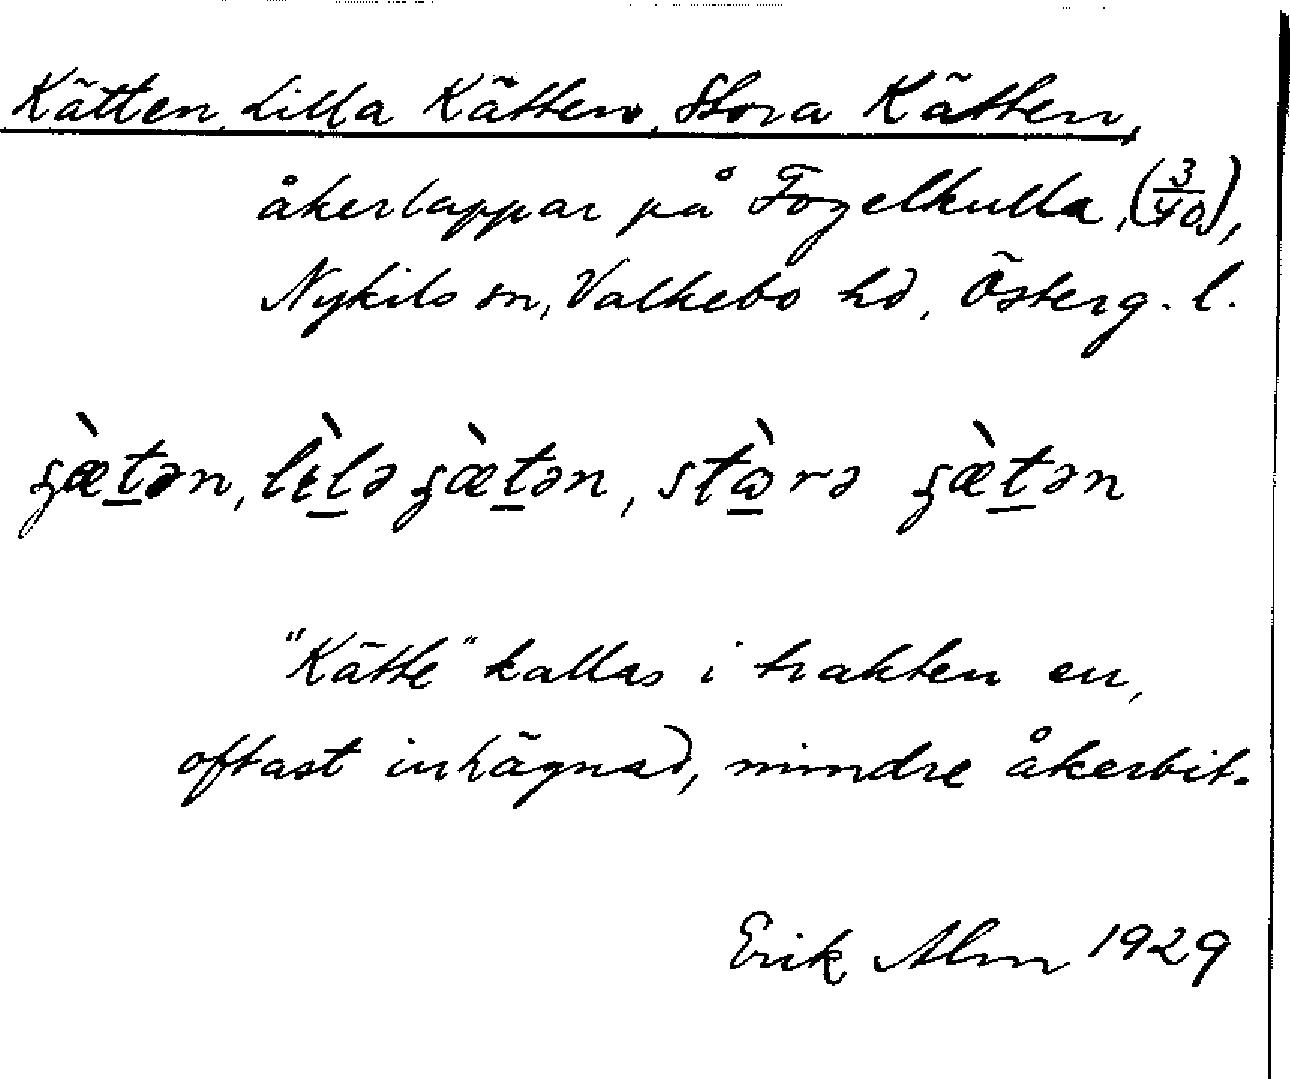 Kätten, Lilla Kätten, Stora Kätten,
åkerlappar på Fogelkulla, (3/40),
Nykils sn, Valkebo hd, Österg. l.
ʒæ̀t̲ən, lɩ̀l̲ə ʒæ̀t̲ən, stɷ̲̀rə ʒæ̀t̲ən
"Kätte" kallas i trakten en,
oftast inhägnad, mindre åkerbit.
Erik Alm 1929